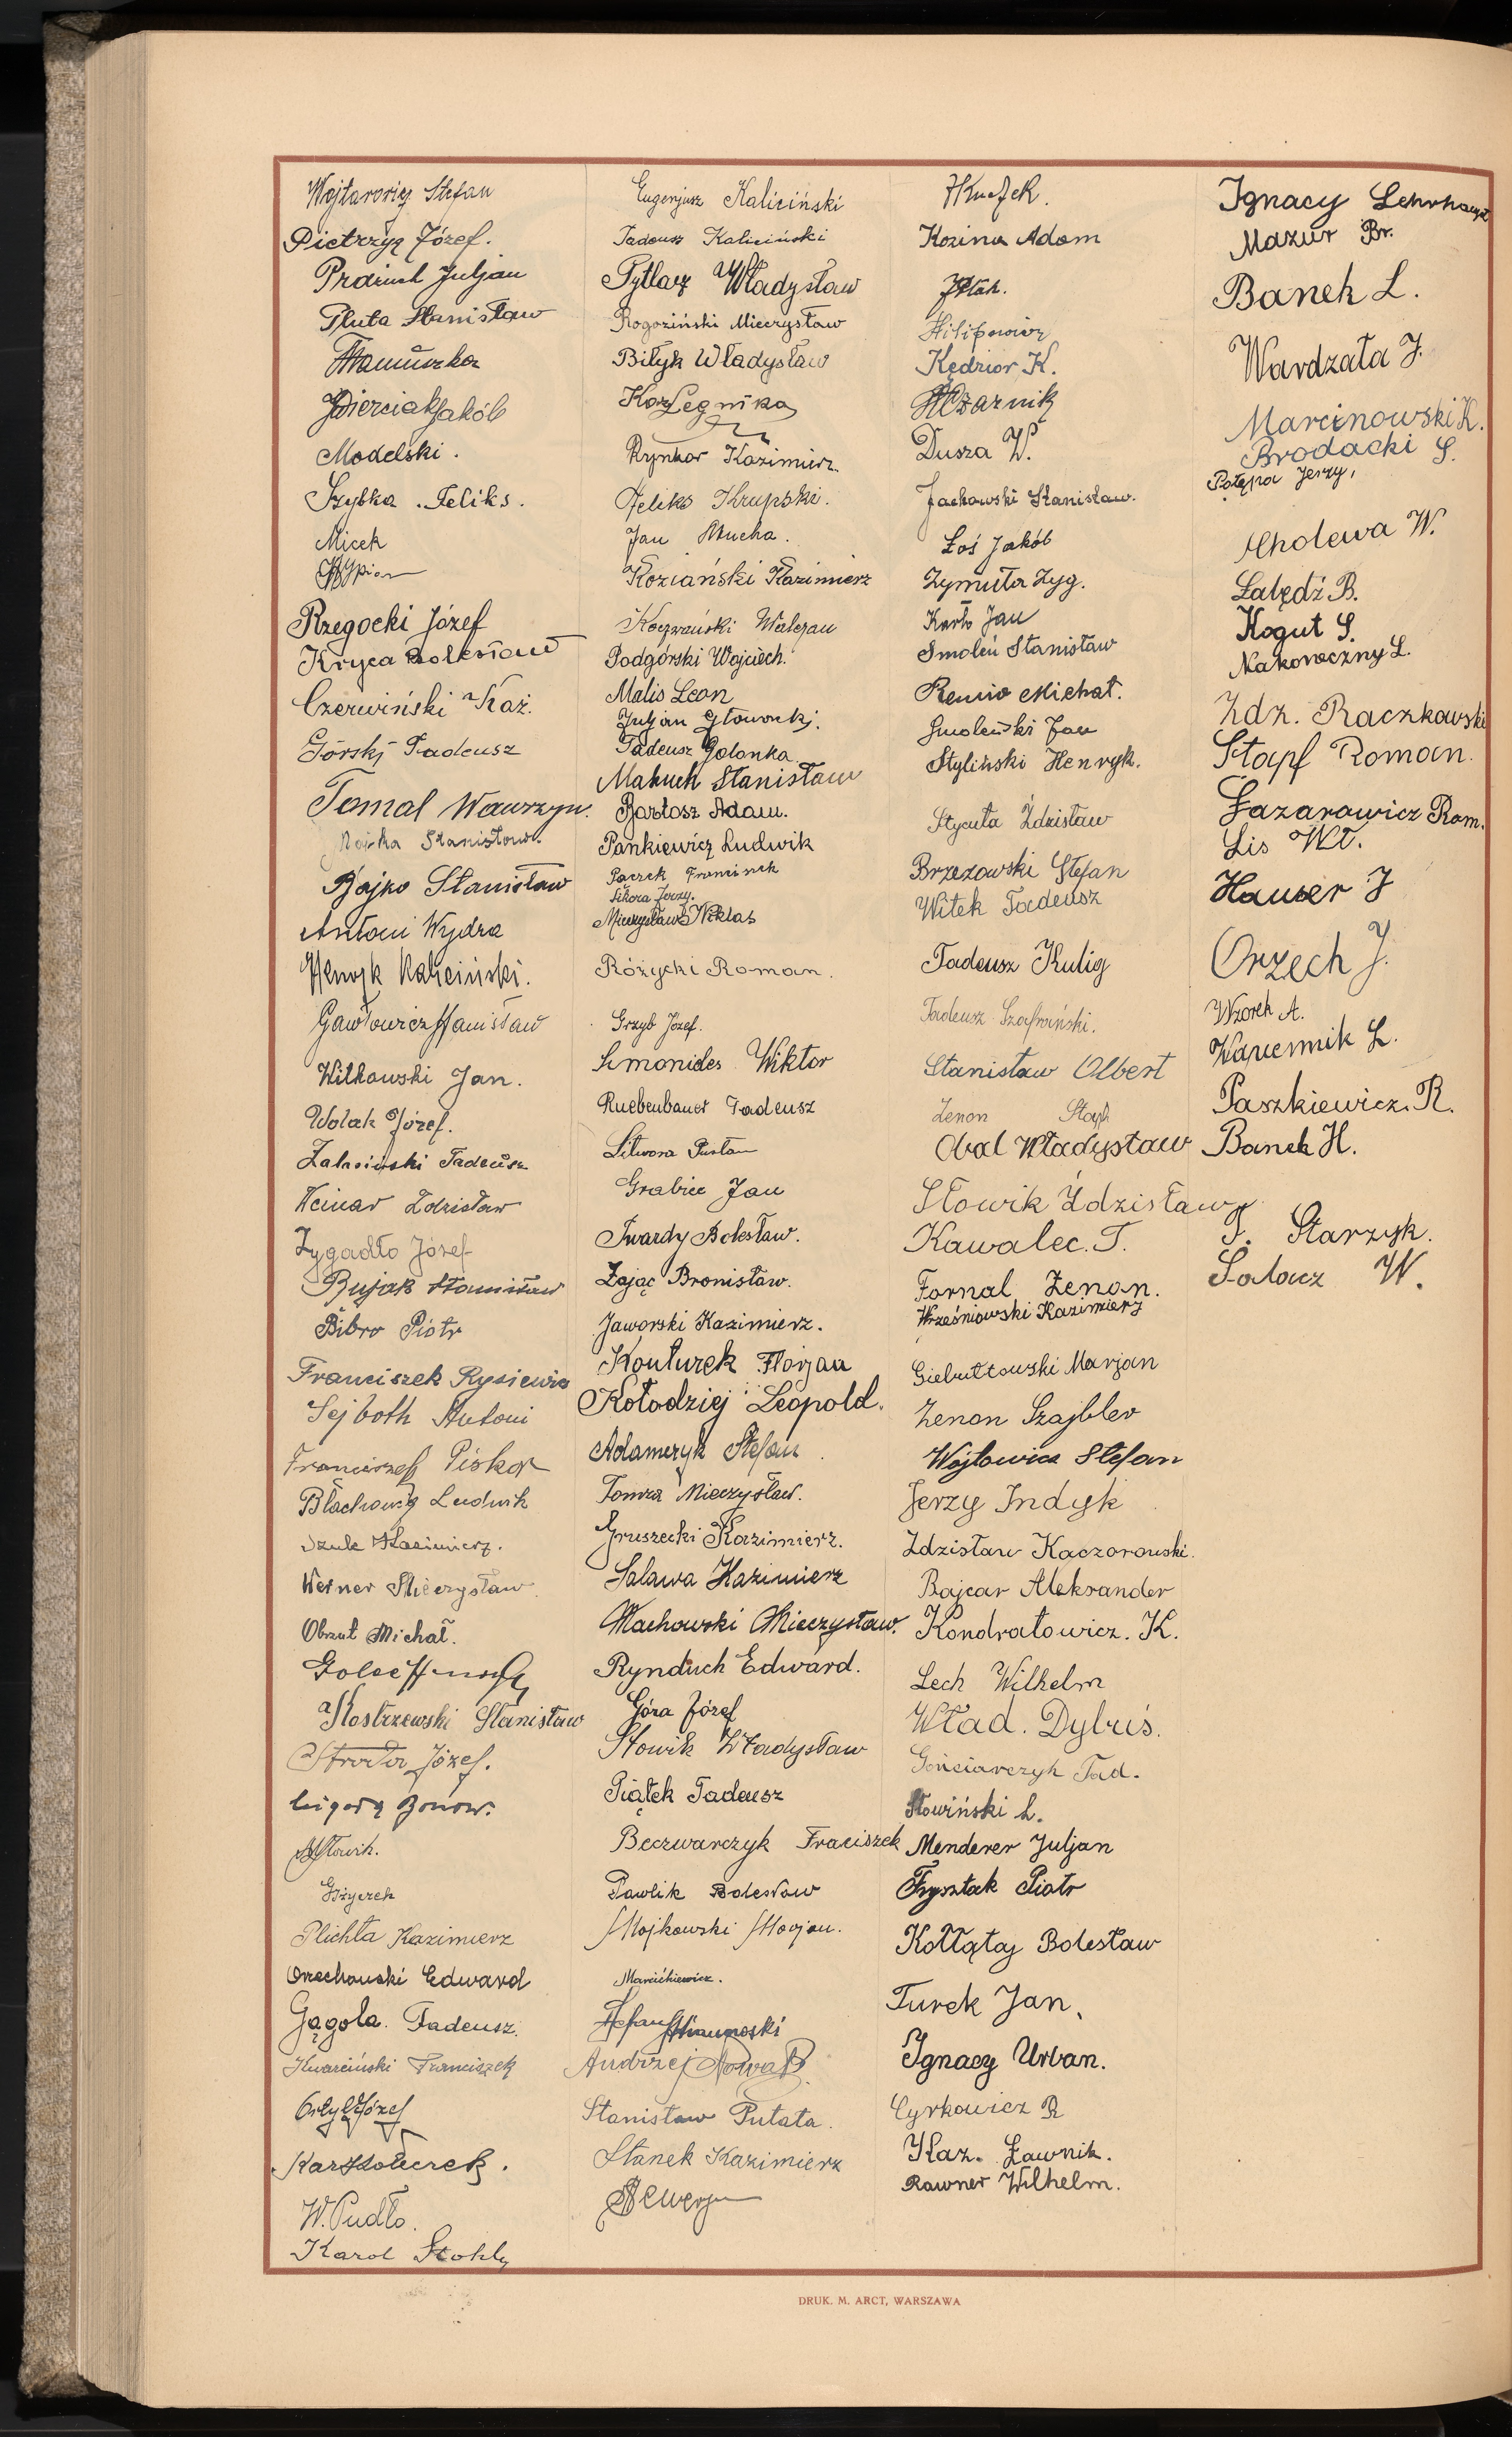 Wojtarowicz Stefan
Pietrzyk Józef.
Prażuch Juljan
Pluta Stanisław
Jakób
Modelski.
Szybka. Feliks.
Micek
Rzegocki Józef
Kryca Bolesław
Czerwiński Kaź.
Górski Tadeusz
Tomal Wawrzyn.
Stanisław.
Bajko Stanisław
Antoni Wydra
Henryk Kaliciński.
Gawłowicz Stanisław
Witkowski Jan.
Wolak Józef.
Zalasiński Tadeusz
Weinar Zdzisław
Zygadło Józef
Bujak Stanisław
Bibro Piotr
Franciszek Rysiewicz
Sejboth Antoni
Franciszek Piskor
Błachowicz Ludwik
Kazimierz.
Werner Mieczysław
Obrzut Michał.
Kostrzewski Stanisław
Józef.
Plichta Kazimierz
Orzechowski Edward
Gągola. Tadeusz.
Kwarciński Franciszek
Józef
W. Pudło.
Karol
Eugenjusz Kaliciński
Tadeusz Kaliciński
Pytlarz Władysław
Rogoziński Mieczysław
Biłyk Władysław
Kaz Legnika
Rynkar Kazimierz.
Feliks Krupski.
Jan Mucha.
Koziański Kazimierz
Koczwański Walerjan
Podgórski Wojciech.
Malis Leon
Juljan Głowacki.
Tadeusz Golonka
Makuch Stanisław
Bartosz Adam.
Pankiewicz Ludwik
Paczek Franciszek
Sikora Jerzy.
Mieczysław Niklas
Różycki Roman.
Grzyb Józef.
Simonides Wiktor
Ruebenbauer Tadeusz
Litwora
Grabiec Jan
Twardy Bolesław.
Zając Bronisław.
Jaworski Kazimierz.
Konturek Florjan
Kołodziej Leopold.
Adamczyk Stefan
Tomza Mieczysław.
Gruszecki Kazimierz.
Salawa Kazimierz
Machowski Mieczysław.
Rynduch Edward.
Góra Józef
Słowik Władysław
Piątek Tadeusz
Beczwarczyk Franciszek
Pawlik Bolesław
Majkowski Marjan.
Stefan
Andrzej Nowak
Stanisław Putata.
Stanek Kazimierz
Kozina Adam
Filipowicz
Kędzior K.
Czarnik
Dusza W.
Jachowski Stanisław.
Łoś Jakób
Zymuła Zyg.
Karło Jan
Smoleń Stanisław
Remio Michał.
Smoleński Jan
Styliński Henryk.
Stycuła Zdzisław
Brzezowski Stefan
Witek Tadeusz
Tadeusz Kulig
Tadeusz Szafrański.
Stanisław Olbert
Zenon
Obal Władysław
Słowik Zdzisław
Kawalec. T.
Fornal Zenon.
Wrześniowski Kazimierz
Giebułtowski Marjan
Zenon Szajbler
Wojtowicz Stefan
Jerzy Indyk
Zdzisław Kaczorowski.
Bajcar Aleksander
Kondratowicz. K.
Lech Wilhelm
Wład. Dybuś.
Gościarczyk Tad.
Słowiński L.
Menderer Juljan
Frysztak Piotr
Kołłątaj Bolesław
Turek Jan,
Ignacy Urban.
Cyrkowicz R
Kaz. Ławnik.
Rawner Wilhelm.
Ignacy
Mazur Br.
Banek L.
Wardzała J.
Marcinowski K.
Brodacki S.
Potępa Jerzy,
Cholewa W.
Łabędź B.
Kogut S.
Nakoneczny L.
Zdz. Raczkowski
Stapf Roman.
Łazarowicz Rom.
Lis Wł.
Hauser J
Orzech J.
Wzorek A.
Wapiennik L.
Paszkiewicz. R.
Banek H.
T. Starzyk.
Sałacz W.